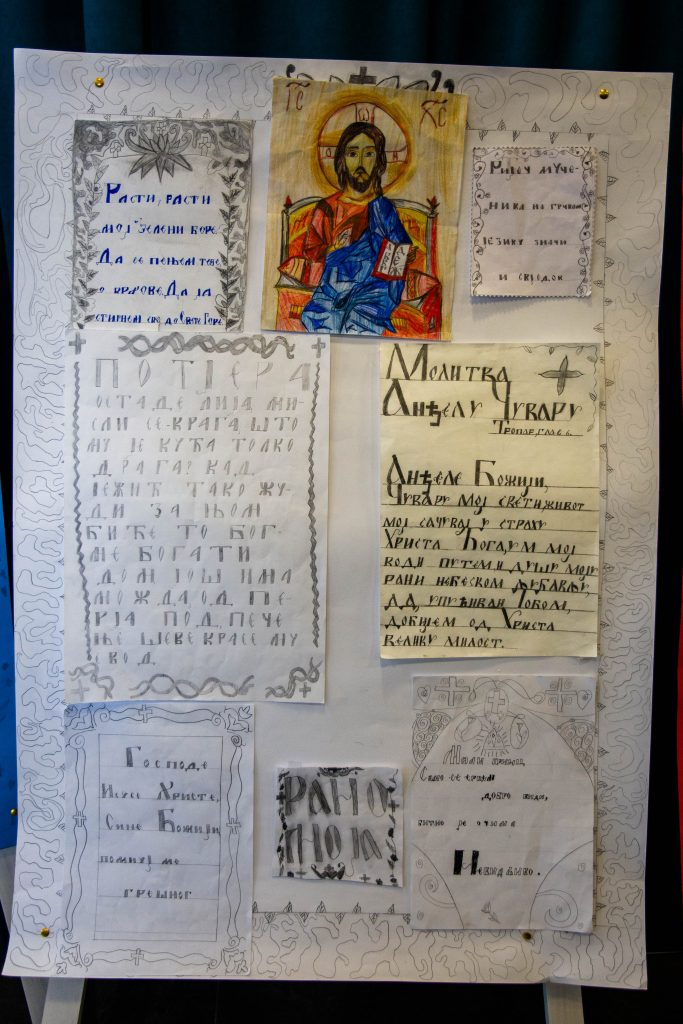 Расти, расти
мој зелени боре
Да се пењем тебе
о врхове, Да ја
Свете Горе
ІС ХС
Ріјеч муче-
ника на грчком
језику значи
и свједок
ПОТЈЕРА
ОСТАДЕ ЛИЈА МИ-
СЛИ СЕ КРАГА, ШТО
МУ ЈЕ КУЋА ТОЛКО
ДРАГА? КАД
ЈЕЖИЋ ТАКО ЖУ-
ДИ ЗА ЊОМ
БИЋЕ ТО БОГ-
МЕ БОГАТИ
ДОМ ЈОШ ИМА
МОЖДА ОД ПЕ-
РЈА ПОД, ПЕЧЕ
ЊЕ ШЕВЕ КРАСЕ МУ
СВОД.
Молитва
Анђелу Чувару
Тропар, глас 6.
Анђеле Божији,
Чувару мој свети, живот
мој сачувај у страху
Христа Бога, ум мој
води путем, и душу моју
рани небеском љубављу,
да, упућиван Тобом,
добијем од Христа
велику милост.
Господе
Исусе Христе,
Сине Божији
помилуј ме
грешног
РАНО
ПОЈА
Мали принц,
Само се срцем
добро види,
битно је очима
Невидљиво.